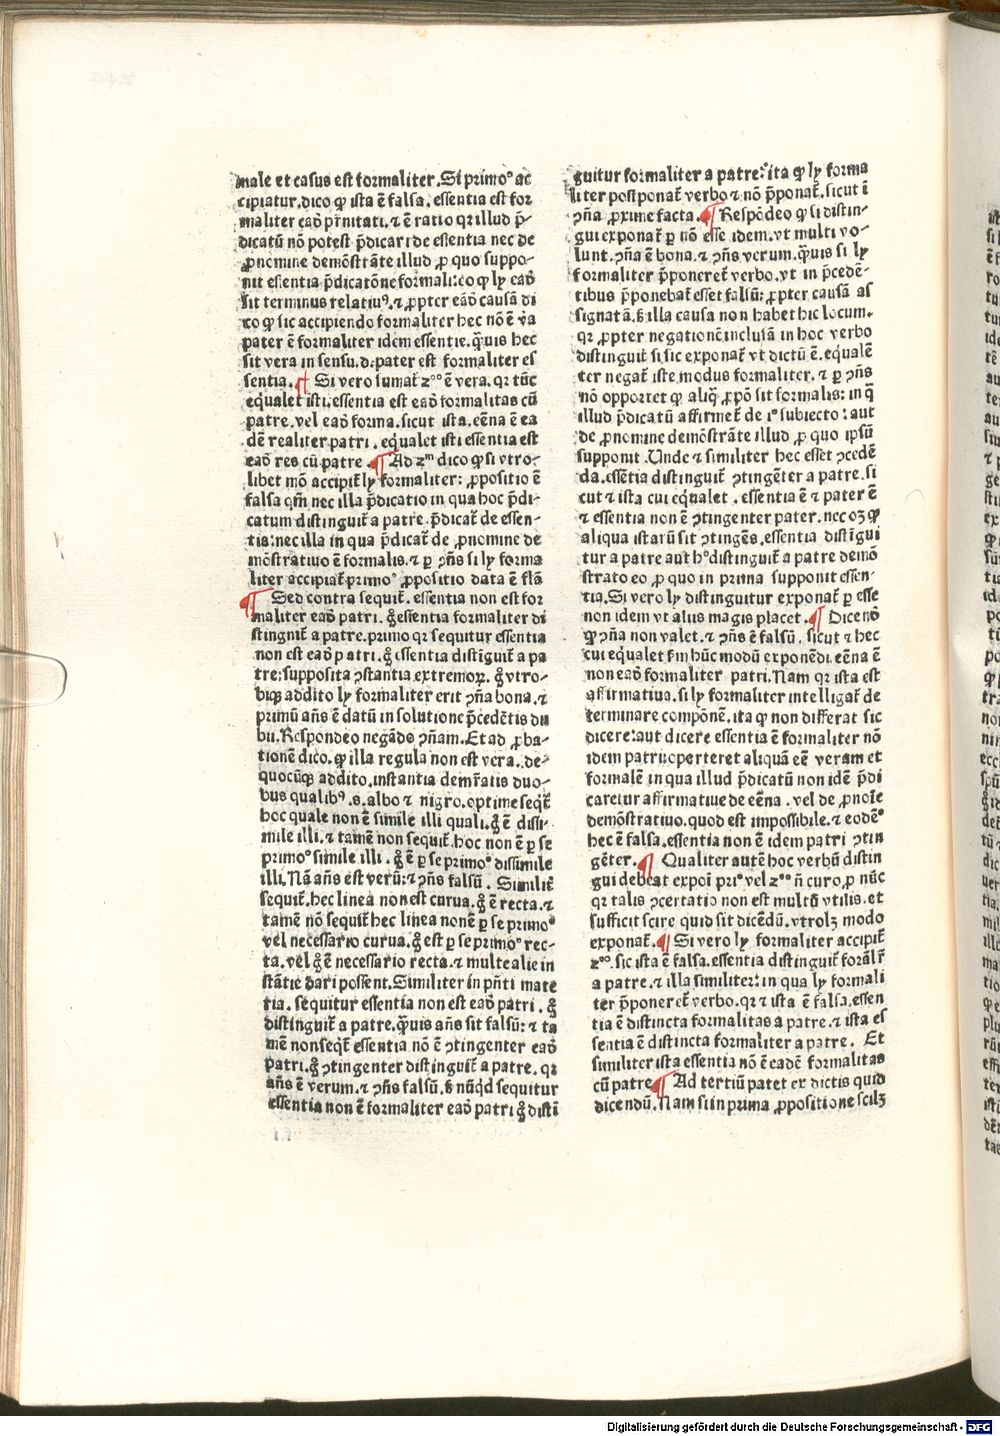 male et casus est formaliter. Si primoꝰ ac
cipiatur. dico ꝙ ista ē falsa. essentia est for
maliter eadē pr̄nitati. ⁊ ē ratio qꝛ illud p̄-
dicatū nō potest p̄dicari de essentia nec de
ꝓnomine demōstrāte illud ꝓ quo suppo-
nit essentia p̄dicatōne formali: eo ꝙ ly eadē
sit terminus relatiuꝰ. ⁊ ꝓpter eādē causā di
co ꝙ sic accipiendo formaliter hec nō ē va
pater ē formaliter idem essentie. q̄uis hec
sit vera in sensu. d. pater est formaliter es
sentia. ¶ Si vero sumat̄ 2ºº ē vera. qꝛ tūc
eq̄ualet isti. essentia est eadē formalitas cū
patre. vel eadē forma. sicut ista. eēna ē ea
dē realiter patri. equalet isti essentia est
eadē res cū patre. ¶ Ad 2ᵐ dico ꝙ si vtro-
libet mō accipit̄ ly formaliter: ꝓpositio ē
falsa qm̄ nec illa p̄dicatio in qua hoc p̄di-
catum distinguit̄ a patre. p̄dicat̄ de essen-
tia: nec illa in qua p̄dicat̄ de ꝓnomine de
mōstratiuo ē formalis. ⁊ ꝑ ꝯn̄s si ly forma
liter accipiat̄ primoº ꝓpositio data ē flā
¶ Sed contra sequit̄. essentia non est for
maliter eadē patri. g̊ essentia formaliter di
stinguit̄ a patre. primo qꝛ sequitur essentia
non est eadē patri. g̊ essentia distīguit̄ a pa
tre: supposita ꝯstantia extremoꝝ. g̊ vtro-
biqꝫ addito ly formaliter erit ꝯn̄a bona. ⁊
primū an̄s ē datū in solutione p̄cedētis du
bii. Respondeo negādo ꝯn̄am. Et ad ꝓba-
tionē dico. ꝙ illa regula non est vera. de
quocūqꝫ addito. instantia demr̄atis duo-
bus qualibꝰ. s. albo ⁊ nigro. optime seqt̄
hoc quale non ē simile illi quali. g̊ ē dissi-
mile illi. ⁊ tamē non sequit̄. hoc non ē ꝑ se
primoº simile illi. g̊ ē ꝑ se primoº dissimile
illi. Nā an̄s est verū: ⁊ ꝯn̄s falsū. Similit̄
sequit̄. hec linea non est curua. g̊ ē recta. ⁊
tamē nō sequit̄ hec linea non ē ꝑ se primoº
vel necessario curua. g̊ est ꝑ se primoº rec-
ta. vel g̊ ē necessario recta. ⁊ multe alie in
stātie dari possent. Similiter in pn̄ti mate
ria. sequitur essentia non est eadē patri. g̊
distinguit̄ a patre. q̄uis an̄s sit falsū: ⁊ ta
mē non seqt̄ essentia nō ē ꝯtingenter eadē
patri. g̊ ꝯtingenter distinguit̄ a patre. qꝛ
an̄s ē verum. ⁊ ꝯn̄s falsū. ß nūqd̄ sequitur
essentia non ē formaliter eadē patri g̊ disti
guitur formaliter a patre: ita ꝙ ly forma
liter postponat̄ verbo ⁊ nō p̄ponat̄. sicut ī
ꝯn̄a ꝓxime facta. ¶ Respōdeo ꝙ si distin-
gui exponat̄ ꝑ nō esse idem. vt multi vo-
lunt. ꝯn̄a ē bona. ⁊ ꝯn̄s verum. q̄uis si ly
formaliter p̄poneret̄ verbo. vt in p̄cedē-
tibus p̄ponebat̄ esset falsū: ꝓpter causā as
signatā. ß illa causa non habet hic locum.
qꝛ ꝓpter negationē inclusā in hoc verbo
distinguit̄ si sic exponat̄ vt dictū ē. equalē
ter negat̄ iste modus formaliter. ⁊ ꝑ ꝯn̄s
nō opportet ꝙ aliq̄ ꝓpō sit formalis: in q̄
illud p̄dicatū affirmet̄ de iº subiecto: aut
de ꝓnomine demōstrāte illud ꝓ quo ipsū
supponit. Unde ⁊ similiter hec esset ꝯcedē
da. essētia distinguit̄ ꝯtingēter a patre. si
cut ⁊ ista cui equalet. essentia ē ⁊ pater ē
⁊ essentia non ē ꝯtingenter pater. nec oꝫ ꝙ
aliqua istarū sit ꝯtingēs. essentia distīgui
tur a patre aut hº distinguit̄ a patre demō
strato eo ꝓ quo in prima supponit essen-
tia. Si vero ly distinguitur exponat̄ ꝑ esse
non idem vt aliis magis placet. ¶ Dicendū
ꝙ ꝯn̄a non valet. ⁊ ꝯn̄s ē falsū. sicut ⁊ hec
cui equalet ẜm hūc modū exponēdi. eēna ē
non eadē formaliter patri. Nam qꝛ ista est
affirmatiua. si ly formaliter intelligat̄ de
terminare compōnē. ita ꝙ non differat sic
dicere: aut dicere essentia ē formaliter nō
idem patri: operteret aliquā eē veram et
formalē in qua illud p̄dicatū non idē p̄di
caretur affirmatiue de eēna. vel de ꝓnoīe
demōstratiuo. quod est impossibile. ⁊ eodēº
hec ē falsa. essentia non ē idem patri ꝯtin
gēter. ¶ Qualiter autē hoc verbū distin
gui debeat expoī priº vel 2ºº n̄ curo. ꝓ nūc
qꝛ talis ꝯcertatio non est multū vtilis. et
sufficit scire quid sit dicēdū. vtrolꝫ modo
exponat̄. ¶ Si vero ly formaliter accipit̄
2ºº. sic ista ē falsa. essentia distinguit̄ forālr̄
a patre. ⁊ illa similiter: in qua ly formali
ter p̄poneret̄ verbo. qꝛ ⁊ ista ē falsa. essen
tia ē distincta formalitas a patre. ⁊ ista es
sentia ē distincta formaliter a patre. Et
similiter ista essentia nō ē eadē formalitas
cū patre. ¶ Ad tertiū patet ex dictis quid
dicendū. Nam si in prima ꝓpositione scilꝫ
Digitalisierung gefördert durch die Deutsche Forschungsgemeinschaft - DFG